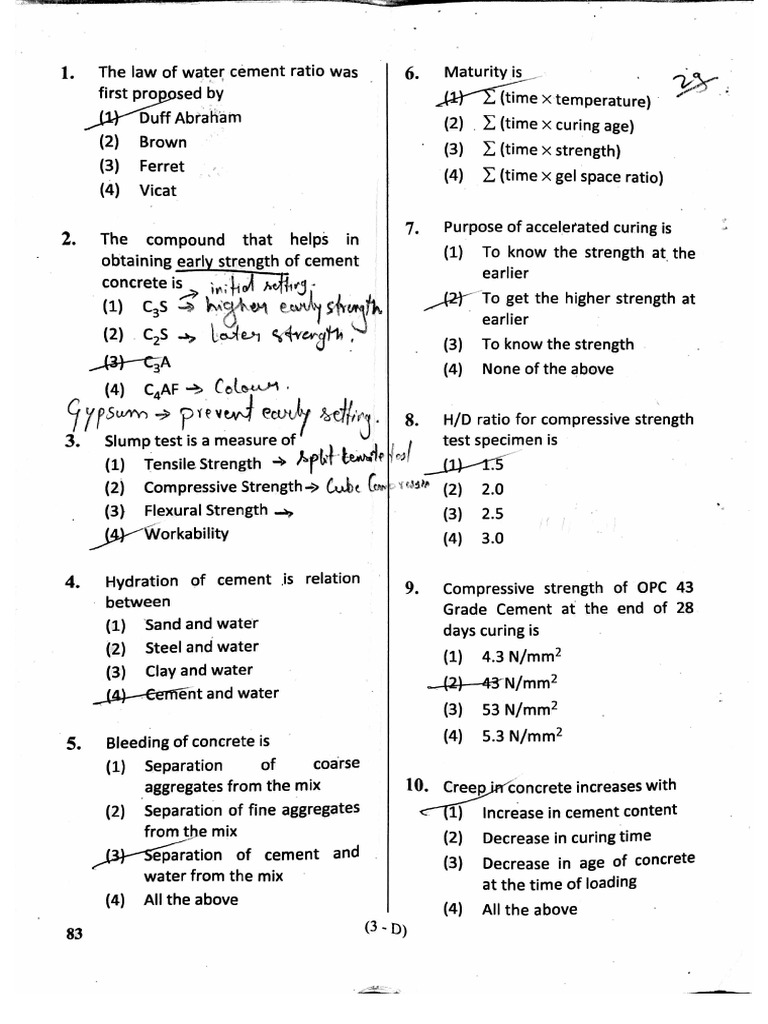 1. The law of water cement ratio was
first proposed by
(1) Duff Abraham
(2) Brown
(3) Ferret
(4) Vicat
2. The compound that helps in
obtaining early strength of cement
concrete is → initial setting.
(1) C3S → higher early strength
(2) C2S → later strength.
(3) C3A
(4) C4AF → Colour.
Gypsum → prevent early setting.
3. Slump test is a measure of
(1) Tensile Strength → split tensile test
(2) Compressive Strength → Cube Compression
(3) Flexural Strength →
(4) Workability
4. Hydration of cement is relation
between
(1) Sand and water
(2) Steel and water
(3) Clay and water
(4) Cement and water
5. Bleeding of concrete is
(1) Separation of coarse
aggregates from the mix
(2) Separation of fine aggregates
from the mix
(3) Separation of cement and
water from the mix
(4) All the above
6. Maturity is
(1) Σ (time × temperature)
(2) Σ (time × curing age)
(3) Σ (time × strength)
(4) Σ (time × gel space ratio)
7. Purpose of accelerated curing is
(1) To know the strength at the
earlier
(2) To get the higher strength at
earlier
(3) To know the strength
(4) None of the above
8. H/D ratio for compressive strength
test specimen is
(1) 1.5
(2) 2.0
(3) 2.5
(4) 3.0
9. Compressive strength of OPC 43
Grade Cement at the end of 28
days curing is
(1) 4.3 N/mm2
(2) 43 N/mm2
(3) 53 N/mm2
(4) 5.3 N/mm2
10. Creep in concrete increases with
(1) Increase in cement content
(2) Decrease in curing time
(3) Decrease in age of concrete
at the time of loading
(4) All the above
83
(3 - D)